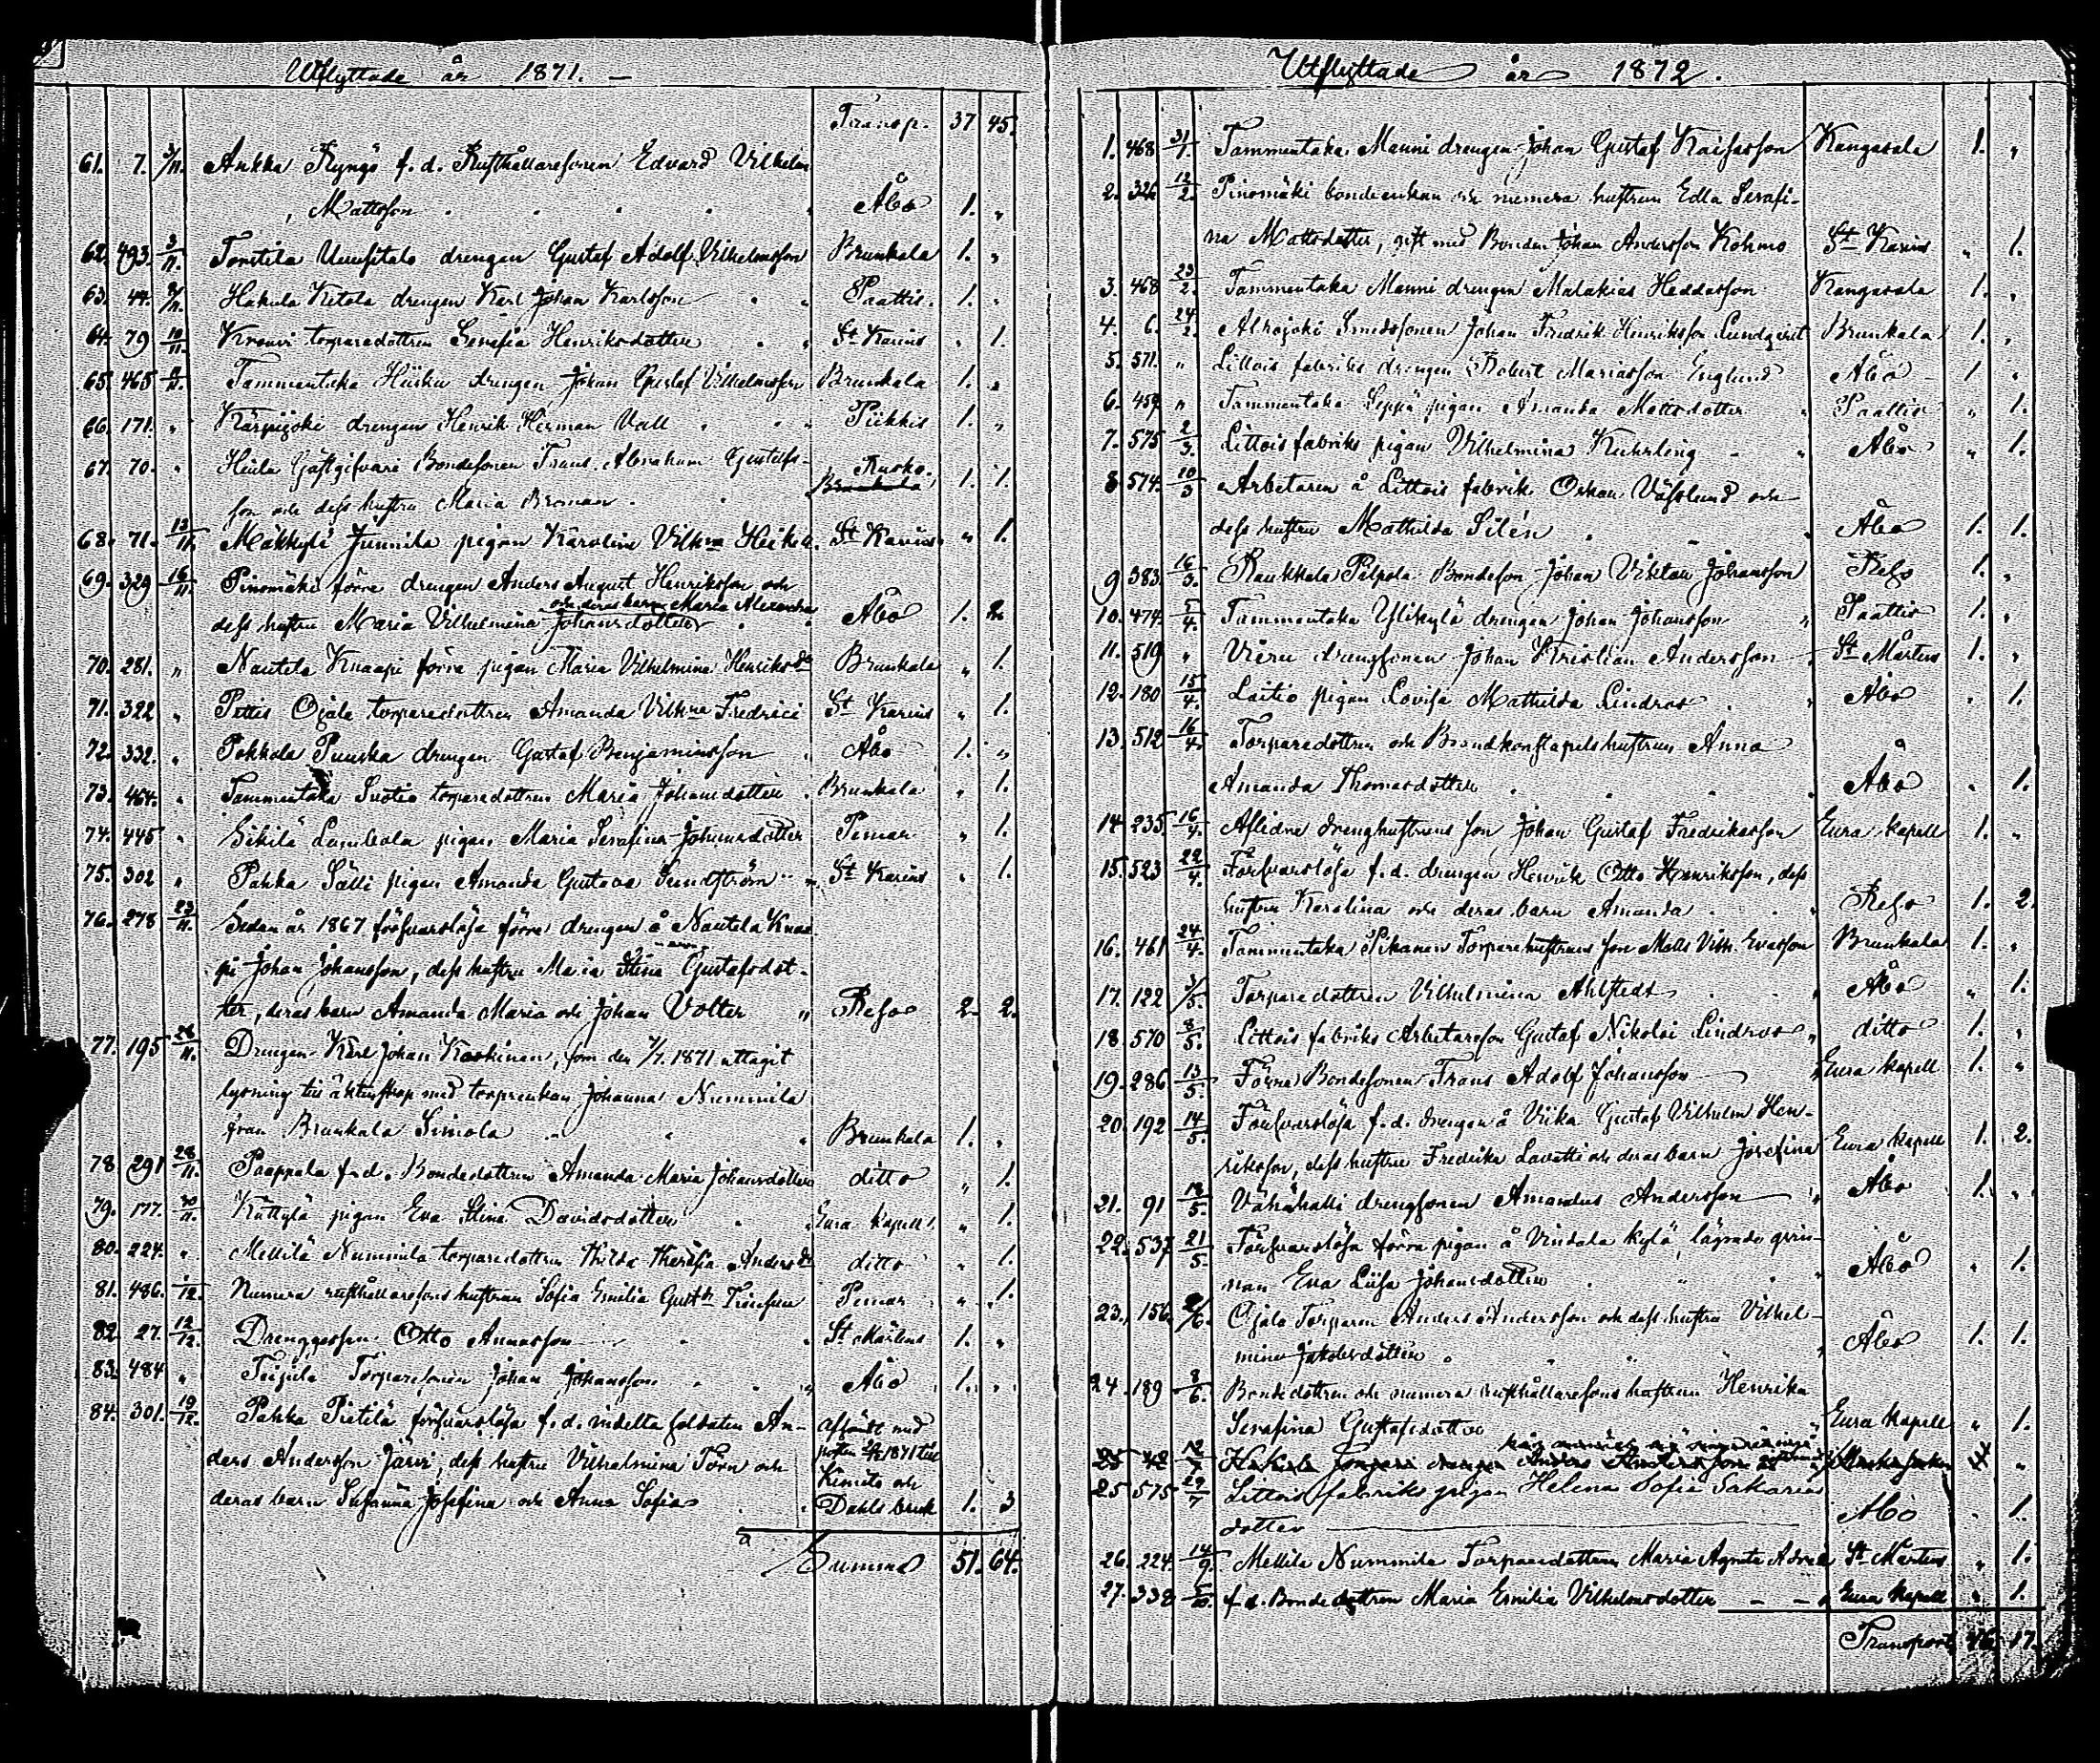 Utflyttade år 1871. —
Transp. 37 45.
61. 7. 3/11. Ankka Kyngö f. d. Rusthållaresonen Edvard Vilhelm
Mattsson . . . . Åbo 1. „
62. 493. 3/11. Tortila Uusitalo drengen Gustaf Adolf Vilhelmsson Brunkala 1. „
63. 44. Hakula Ketola drengen Karl Johan Karlsson . . Paattis. 1. „
64. 79 10/11. Krouvi torparedottren Serafia Henriksdotter . . St Karins „ 1.
65. 465 Tammentaka Hiisku drengen Johan Gustaf Vilhelmsson Brunkala 1. „
66. 171. „ Kärpijoki drengen Henrik Herman Vall . . . Piikkis 1. „
67. 70. „ Gästgifvare Bondesonen Frans Abraham Gustafs-
son och dess hustru Maria Broman . . Rusko. Brunkala 1. 1.
68. 71. 13/11. Mäkkylä Junnila pigan Karolina Vilhna Heikel. St Karins „ 1.
69. 329 16/11. Pinomäki förre drengen Anders August Henriksson och
och deras barn Maria Alexandra
dess hustru Maria Vilhelmina Johansdotter . . Åbo 1. 2.
70. 281. „ Nautela Knaapi förra pigan Maria Vilhelmina Henriksdr Brunkala „ 1.
71. 322 „ Pettis Ojala torparedottren Amanda Vilhna Fredrici St Karins „ 1.
72. 332. „ Pokkola Puuska drengen Gustaf Benjaminsson „ Åbo 1. „
73. 464. „ Tammentaka Suotio torparedottren Maria Johansdotter . Brunkala „ 1.
74. 445 „ Sikilä Lambola pigan Maria Serafina Johansdotter Pemar „ 1.
75. 302 „ Pahka Sälli pigan Amanda Gustava Sundström „ St Karins „ 1.
76. 278 23/11. Sedan år 1867 försvarslösa förre drengen å Nautela Knaa-
pi Johan Johansson, dess hustru Maria Stina Gustafsdot-
ter, deras barn Amanda Maria och Johan Volter „ Reso 2. 2.
77. 195 28/11. Drengen Karl Johan Koskinen, som den 7/7. 1871 uttagit
lysning till äktenskap med torpenkan Johanna Nummila
från Brunkala Simola „ „ „ Brunkala 1. „
78 291 28/11. Paappala f. d. Bondedottren Amanda Maria Johansdotter ditto „ 1.
79. 177. 30/11. Kättylä pigan Eva Stina Davidsdotter . „ Eura kapell. „ 1.
80. 224. „ Mellilä Nummila torparedottren Hilda Theresia Andersdr ditto „ 1.
81. 486. 1/12. Numera rusthållaresons hustrun Sofia Emilia Gustdr Pemar „ 1.
82. 27. 12/12. Drenggossen Otto Annasson . . St Mårtens 1. „
83. 484 „ Teijula Torparesonen Johan Johansson . . „ Åbo 1. „
84. 301. 19/12. Pahka Pietilä försvarslösa f. d. indelta soldaten An- afsändt med
ders Andersson Järvi, dess hustru Vilhelmina Törn och posten 1871 till
deras barn Susanna Josefina och Anna Sofia . . Kimito och Dahls bruk 1. 3
Summa 51. 64.
Utflyttade år 1872.
1. 468 31/1. Tammentaka Manni drengen Johan Gustaf Kaisasson Kangasala 1. „
2. 326 12/2. Pinomäki bondeenkan och numera hustrun Edla Serafi-
na Mattsdotter, gift med Bonden Johan Andersson Kohmo St Karins „ 1.
3. 468 23/2. Tammentaka Manni drengen Malakias Heddasson Kangasala 1. „
4. 6. 24/2. Alhojoki Smedssonen Johan Fredrik Henriksson Lundqvist Brunkala 1. „
5. 571. „ Littois fabriks drengen Robert Mariasson Englund Åbo 1 „
6. 459 „ Tammentaka Seppä pigan Amanda Mattsdotter „ Paattis „ 1.
7. 575 2/3. Littois fabriks pigan Vilhelmina Kuhrling „ Åbo „ 1.
8 574. 10/3 Arbetaren å Littois fabrik Oskar Väslund och
dess hustru Mathilda Silén . „ Åbo 1. 1.
9 383. 16/3. Raukkala Pälpola Bondeson Johan Viktor Johansson Reso 1. „
10. 474. 5/4. Tammentaka Ylikylä drengen Johan Johansson „ Paattis 1. „
11. 519 „ Vieru drengsonen Johan Kristian Andersson . St Mårtens 1. „
12. 180 15/4. Laitio pigan Lovisa Mathilda Lindros . „ Åbo „ 1.
13. 512 16/4. Torparedottren och Brandkonstapelshustrun Anna
Amanda Thomasdotter . . . Åbo „ 1.
14. 235. 16/4. Aflidne drenghustruns son Johan Gustaf Fredrikasson Eura kapell 1. „
15. 523 22/4. Försvarslösa f. d. drengen Henrik Otto Henriksson, dess
hustru Karolina och deras barn Amanda . . „ Reso 1. 2.
16. 461 24/4. Tammentaka Pikanen Torparehustruns son Matts Vilh. Evasson Brunkala 1. „
17. 122 3/5. Torparedottren Vilhelmina Ahlstedt . . „ Åbo „ 1.
18. 570 8/5. Littois fabriks Arbetareson Gustaf Nikolai Lindroos „ ditto 1. „
19. 286 13/5. Förre Bondesonen Frans Adolf Johansson „ Eura kapell 1. „
20. 192 14/5. Försvarslösa f. d. drengen å Viika Gustaf Vilhelm Hen-
riksson, dess hustru Fredrika Lavetti och deras barn Josefina Eura kapell 1. 2.
21. 91 18/5. Vähähalli drengsonen Amandus Andersson „ Åbo 1. „
22. 537 21/5. Försvarslösa förra pigan å Vindala kylä, lägrade qvin-
nan Eva Lisa Johansdotter . „ . Åbo „ 1.
23. 156. Ojala Torparen Anders Andersson och dess hustru Vilhel-
mina Jakobsdotter . „ „ Åbo 1. 1.
24. 189 8/6. Bondedottren och numera rusthållaresons hustrun Henrika
Serafina Gustafsdotter Eura kapell „ 1.
25 42 12/7 Hakula drengen Anders Andersson
25 575 29/7 Littois fabriks pigan Helena Sofia Sakarias
dotter Åbo . 1.
26. 224. 14/9. Mellilä Nummila Torparedottren Maria Agneta St Mårtens „ 1.
27. 338 5/10. f. d. Bondedottren Maria Emilia Vilhelmsdotter — — „ Eura kapell „ 1.
Transport 17.